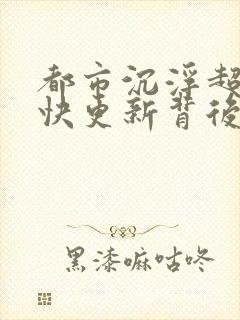 都市沉浮超
快更新背後
黑漆嘛咕咚